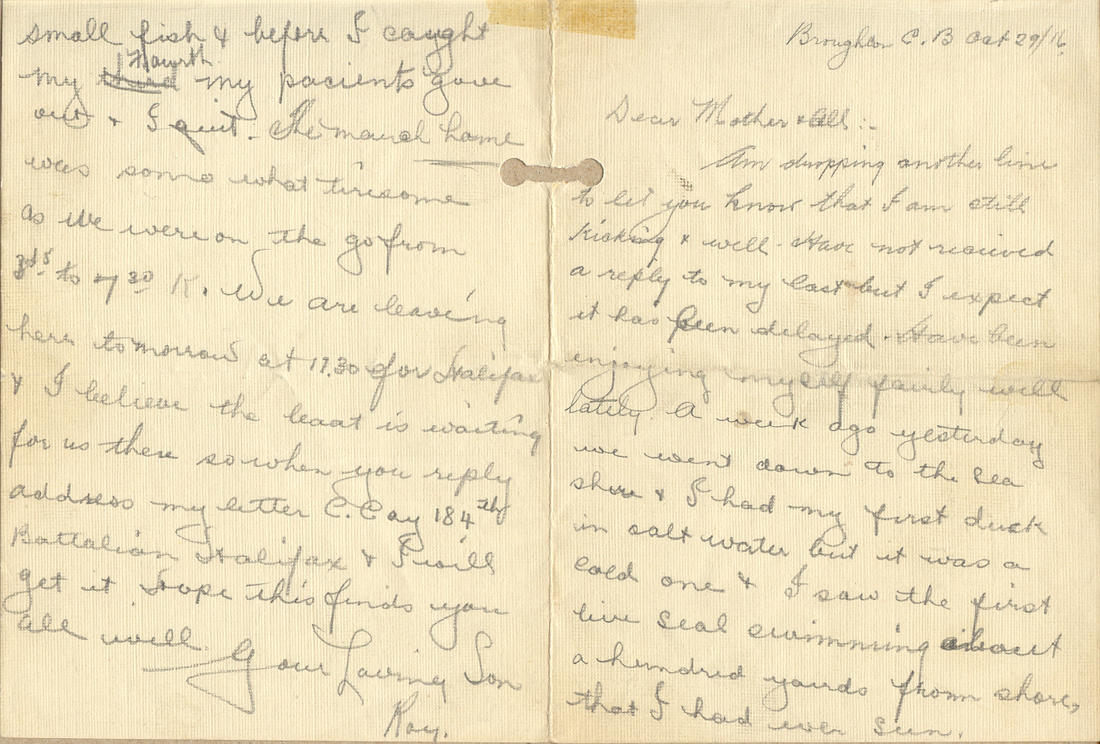 Broughton C. B Oct 29/16
Dear Mother & All :-
Am dropping another line
to let you know that I am still
kicking & well. Have not recieved
a reply to my last but I expect
it has been delayed. Have been
enjoying myself fairly well
lately. A week ago yesterday
we went down to the sea
shore & I had my first duck
in salt water but it was a
cold one & I saw the first
live seal swimming about
a hundred yards from shore,
that I had ever seen.
small fish & before I caught
my third Fourth my pacients gave
out & I quit. The march home
was some what tiresome
as we were on the go from
to 7 30 K. We are leaving
here tomorrow at 17.30 for Halifax
& I believe the boat is waiting
for us there so when you reply
address my letter C. Coy 184th
Battalion Halifax & I will
get it Hope this finds you
all well.
Your Loving Son
Roy.